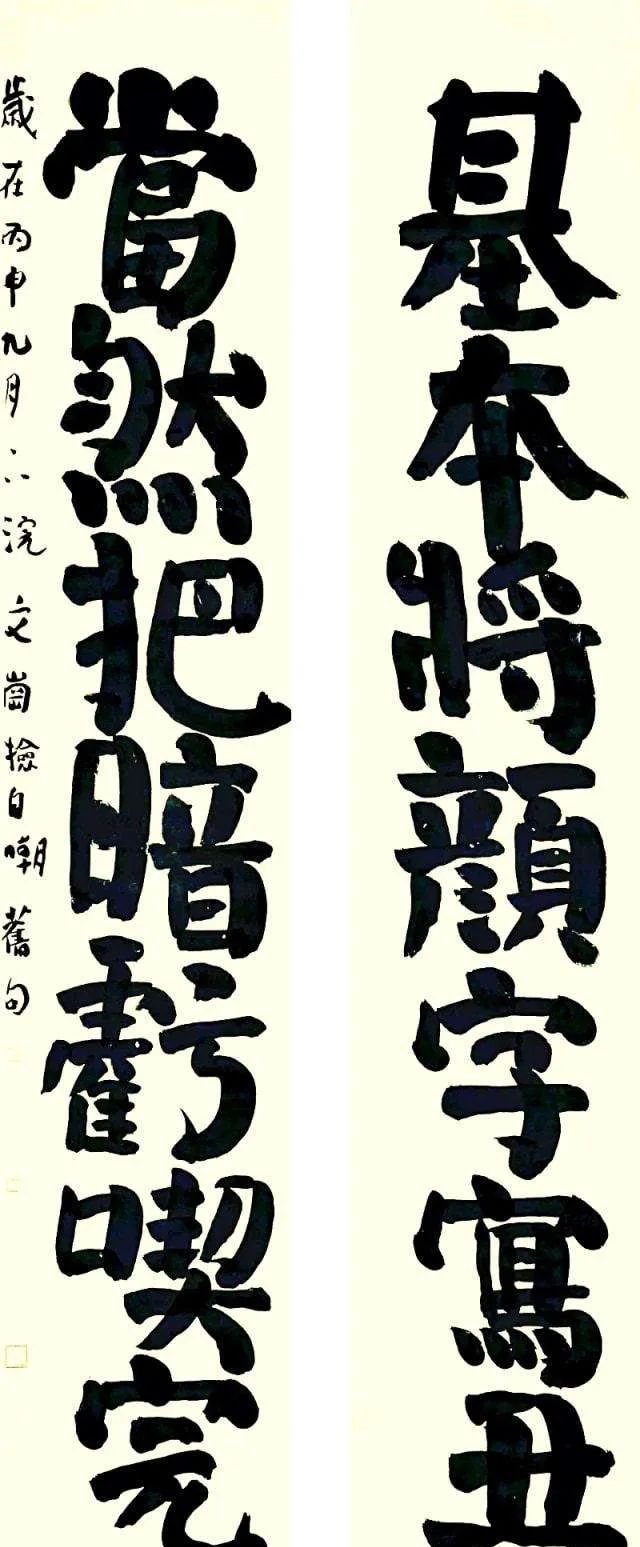 基本將顏字寫丑
當然把暗虧喫完
歲在丙申九月下浣 文崗撿自嘲舊句